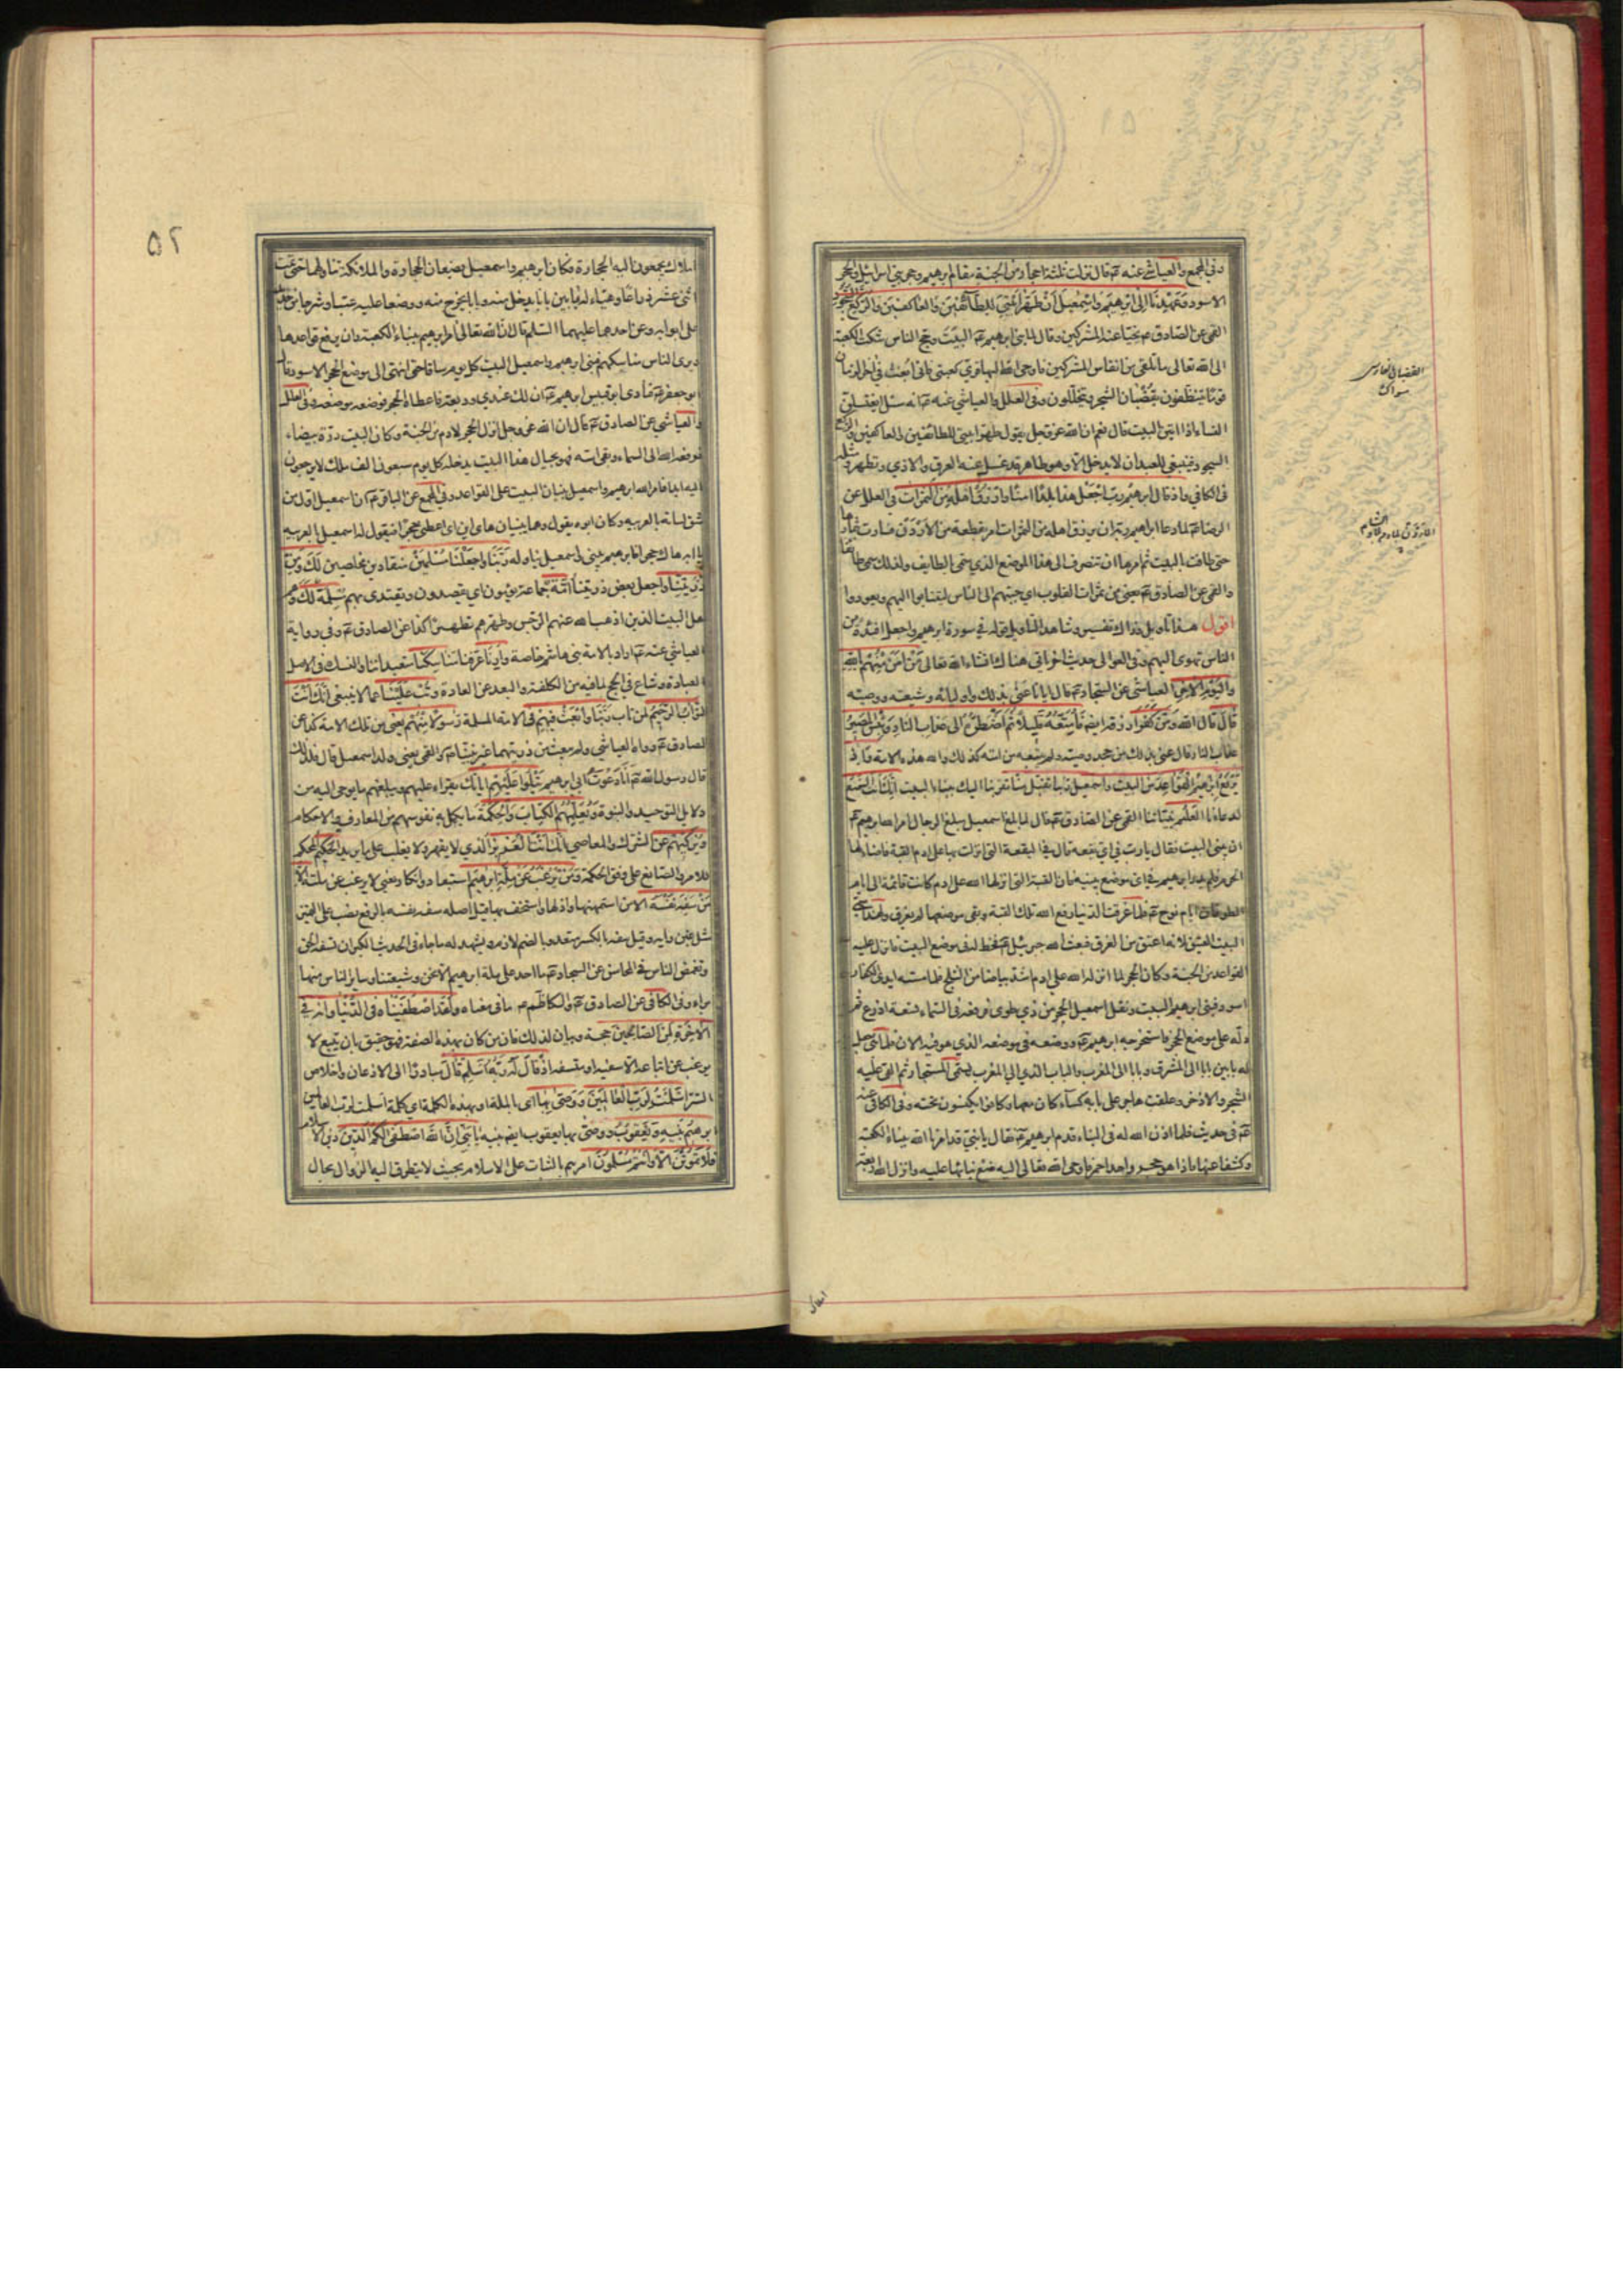 وفي المجمع والعياشي عنه ع قال نزلت ثلثة احجار من الجنة مقام ابرهيم وحجر بني اسرائيل والحجر
الاسود وَعَهِدْنَا اِلٰى اِبْرٰهِيمَ وَاِسْمٰعِيلَ اَنْ طَهِّرَا بَيْتِيَ لِلطَّائِفِينَ وَالْعَاكِفِينَ وَالرُّكَّعِ السُّجُودِ
القمي عن الصادق ع نحيا عنه المشركين وقال لما بنى ابرهيم ع البيت وحج الناس شكت الكعبة
الى الله تعالى ما تلقى من انفاس المشركين فاوحى الله اليها قري كعبتي فاني ابعث في اخر الزمان
قوما يتنظفون بقضبان الشجر ويتخللون وفي العلل والعياشي عنه ع انه سئل ايغتسلن
النساء اذا اتين البيت قال نعم ان الله عز وجل يقول طهرا بيتي للطائفين والعاكفين والركع
السجود فينبغي للعبد ان لا يدخل الا وهو طاهر قد غسل عنه العرق والاذى وتطهر ومثله
في الكافي واذ قال ابرهيم رب اجْعَلْ هذا بلدا امنا وارزق اهله من الثمرات في العلل عن
الرضا ع لما دعا ابراهيم ربه ان يرزق اهله من الثمرات امر بقطعة من الاردن فسارت بثمارها
حتى طافت بالبيت ثم امرها ان تنصرف الى هذا الموضع الذي سمي الطايف ولذلك سمي طائفا
والقمي عن الصادق ع يعني من ثمرات القلوب اي حببهم الى الناس لينتابوا اليهم ويعودوا
اقول هذا تاويل وذاك تفسير وشاهد التاويل قوله في سورة ابرهيم واجعل افئدة من
الناس تهوى اليهم وفي الغوالي حديث اخر ياتي هناك انشاء الله تعالى مَنْ اٰمَنَ مِنْهُمْ بِاللهِ
وَالْيَوْمِ الْاٰخِرِ العياشي عن السجاد ع قال ايانا عنى بذلك واوليائه وشيعة وصيه
قَالَ قال الله وَمَنْ كَفَرَ ارزقه ايضا فَاُمَتِّعُهُ قَلِيلًا ثُمَّ اَضْطَرُّهُ اِلٰى عذاب النار وَبِئْسَ الْمَصِيرُ
عذاب النار قال عنى بذلك من جحد وصيه ولم يتبعه من امته كذلك والله هذه الامة وَاِذْ
يَرْفَعُ اِبْرٰهِيمُ الْقَوَاعِدَ من البيت واسمعيل ربنا تقبل منا تقربنا اليك ببناء البيت اِنَّكَ اَنْتَ السَّمِيعُ
لدعائنا الْعَلِيمُ بنياتنا القمي عن الصادق ع قال لما بلغ اسمعيل مبلغ الرجال امر الله ابرهيم ع
ان يبني البيت فقال يارب في اي بقعة قال في البقعة التي انزلت بها على ادم القبة فاضاء لها
الحرم فلم يدر ابرهيم في اي موضع يبنيه فان القبة التي انزلها الله على ادم كانت قائمة الى ايام
الطوفان ايام نوح ع فلما غرقت الدنيا رفع الله تلك القبة وبقي موضعها لم يغرق ولهذا سمي
البيت العتيق لانه اعتق من الغرق فبعث الله جبرئيل ع فخط له في موضع البيت فانزل عليه
القواعد من الجنة وكان الحجر لما انزله الله على ادم اشد بياضا من الثلج فلما مسته ايدي الكفار
اسود فبنى ابرهيم البيت ونقل اسمعيل الحجر من ذي طوى فرفعه في السماء تسعة اذرع ثم
دله على موضع الحجر فاستخرجه ابرهيم ع ووضعه في موضعه الذي هو فيه الان فلما بنى جعل
له بابين بابا الى المشرق وبابا الى المغرب والباب الذي الى المغرب يسمى المستجار ثم القى عليه
الشجر والاذخر وعلقت هاجر على بابه كساء كان معها وكانوا يكنسون تحته وفي الكافي عنه
ع في حديث فلما اذن الله له في البناء قدم ابرهيم ع فقال يا بني قد امرنا الله ببناء الكعبة
وكشفا عنها فاذا هو حجر واحد احمر فاوحى الله تعالى اليه ضع بنائها عليه وانزل الله اربعة
القضبان الفارسي
سواك
٥٢
املاك يجمعون اليه الحجارة فكان ابرهيم واسمعيل يضعان الحجارة والملائكة تناولهما حتى تمت
اثنى عشر ذراعا وهيئا له بابين بابا يدخل منه وبابا يخرج منه ووضعا عليه عتبا وشرجا من حديد
على ابوابه وعن احدهما عليهما السلم قال ان الله تعالى امر ابرهيم ببناء الكعبة وان يرفع قواعدها
ويرى الناس مناسكهم فبنى ابرهيم واسمعيل البيت كل يوم ساقا حتى انتهى الى موضع الحجر الاسود قال
ابو جعفر ع فنادى ابو قبيس ابرهيم ع ان لك عندي وديعة فاعطاه الحجر فوضعه موضعه وفي العلل
والعياشي عن الصادق ع قال ان الله عز وجل انزل الحجر لادم من الجنة وكان البيت درة بيضاء
فرفعه الله الى السماء وبقي اسه فهو بحيال هذا البيت يدخله كل يوم سبعون الف ملك لا يرجعون
اليه ابدا فامر الله ابرهيم واسمعيل ببنيان البيت على القواعد وفي المجمع عن الباقر ع ان اسمعيل اول من
شق لسانه بالعربية وكان ابوه يقول وهما يبنيان هاي ابن اي اعطني حجرا فيقول له اسمعيل بالعربية
يا ابه هاك حجرا فابرهيم يبني واسمعيل يناوله رَبَّنَا وَاجْعَلْنَا مُسْلِمَيْنِ منقادين مخلصين لَكَ وَمِنْ
ذُرِّيَّتِنَا واجعل بعض ذريتنا اُمَّةً جماعة يؤمون اي يقصدون ويقتدى بهم مُسْلِمَةً لَكَ وهم
اهل البيت الذين اذهب الله عنهم الرجس وطهرهم تطهيرا كذا عن الصادق ع وفي رواية
العياشي عنه ع اراد بالامة بني هاشم خاصة وَاَرِنَا عرفنا مَنَاسِكَنَا متعبداتنا والنسك في الاصل
العبادة وشاع في الحج لما فيه من الكلفة والبعد عن العادة وَتُبْ عَلَيْنَا عما لا ينبغي اِنَّكَ اَنْتَ
التَّوَّابُ الرَّحِيمُ لمن تاب رَبَّنَا وَابْعَثْ فِيهِمْ في الامة المسلمة رَسُولًا مِنْهُمْ يعني من تلك الامة كذا عن
الصادق ع رواه العياشي ولم يبعث من ذريتهما غير نبينا ص القمي يعني ولد اسمعيل قال فلذلك
قال رسول الله ص اَنَا دَعْوَتُ ابي ابرهيم يَتْلُوا عَلَيْهِمْ اٰيَاتِكَ يقراء عليهم ويبلغهم ما يوحى اليه من
دلايل التوحيد والنبوة وَيُعَلِّمُهُمُ الْكِتَابَ وَالْحِكْمَةَ ما يكمل به نفوسهم من المعارف والاحكام
وَيُزَكِّيهِمْ عن الشرك والمعاصي اِنَّكَ اَنْتَ الْعَزِيزُ الذي لا يقهر ولا يغلب على ما يريد الْحَكِيمُ المحكم
للامر والصانع على وفق الحكمة وَمَنْ يَرْغَبُ عَنْ مِلَّةِ اِبْرٰهِيمَ استبعاد وانكار يعني لا يرغب عن ملته اِلَّا
مَنْ سَفِهَ نَفْسَهُ الا من استمهنها واذلها واستخف بها قيل اصله سفه نفسه بالرفع نصب على التميز
مثل غبن رايه وقيل سفه بالكسر متعد وبالضم لازم ويشهد له ما جاء في الحديث الكبر ان تسفه الحق
وتغمض الناس في المحاسن عن السجاد ع ما احد على ملة ابرهيم الا نحن وشيعتنا وساير الناس منها
براء وفي الكافي عن الصادق ع والكاظم ع ما في معناه وَلَقَدِ اصْطَفَيْنَاهُ فِي الدُّنْيَا وَاِنَّهُ فِي
الْاٰخِرَةِ لَمِنَ الصَّالِحِينَ حجة وبيان لذلك فان من كان بهذه الصفة فهو حقيق بان يتبع لا
يرغب عن اتباعه الا سفيه او متسفه اِذْ قَالَ لَهُ رَبُّهُ اَسْلِمْ قَالَ مبادرا الى الاذعان واخلاص
السر اَسْلَمْتُ لِرَبِّ الْعَالَمِينَ وَوَصّٰى بِهَا اي بالملة او بهذه الكلمة اي كلمة اسلمت لرب العالمين
ابرهيمُ بَنِيهِ وَيَعْقُوبُ ووصى بها يعقوب ايضا بنيه يَا بَنِيَّ اِنَّ اللهَ اصْطَفٰى لَكُمُ الدِّينَ دين الاسلام
فَلَا تَمُوتُنَّ اِلَّا وَاَنْتُمْ مُسْلِمُونَ امرهم بالثبات على الاسلام بحيث لا يتطرق اليه الزوال بحال
املاك